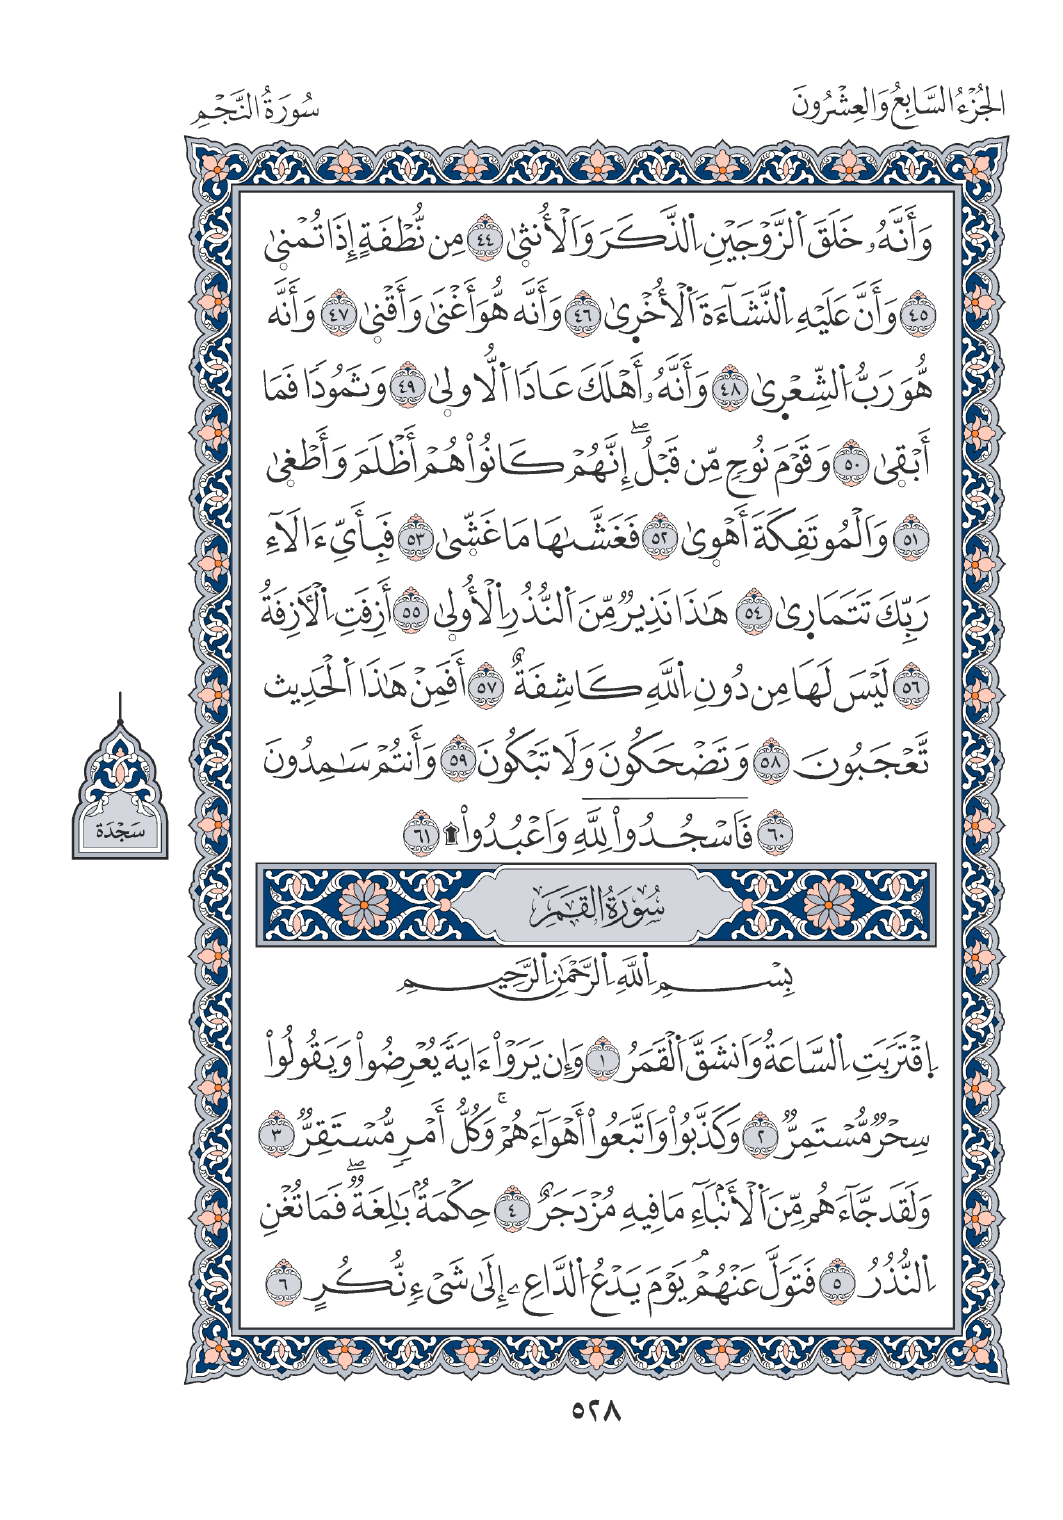 الجُزْءُ السَّابِعُ وَالعِشْرُونَ
سُورَةُ النَّجْمِ
وَأَنَّهُۥ خَلَقَ اَ۬لزَّوْجَيْنِ اِ۬لذَّكَرَ وَالْأُنث۪ىٰ ٤٤ مِن نُّطْفَةٍ إِذَا تُمْن۪ىٰ
٤٥ وَأَنَّ عَلَيْهِ اِ۬لنَّشَآءَةَ اَ۬لْأُخْر۪ىٰ ٤٦ وَأَنَّه هُّوَ أَغْنَىٰ وَأَقْن۪ىٰ ٤٧ وَأَنَّه
هُّوَ رَبُّ اُ۬لشِّعْر۪ىٰ ٤٨ وَأَنَّهُۥ أَهْلَكَ عَادَا اَ۬لُّاول۪ىٰ ٤٩ وَثَمُودًا فَمَا
أَبْق۪ىٰ ٥٠ وَقَوْمَ نُوحٍ مِّن قَبْلُ ۖ إِنَّهُمْ كَانُوا۟ هُمْ أَظْلَمَ وَأَطْغ۪ىٰ
٥١ وَالْمُوتَفِكَةَ أَهْو۪ىٰ ٥٢ فَغَشَّىٰهَا مَا غَشّ۪ىٰ ٥٣ فَبِأَيِّ ءَالَآءِ
رَبِّكَ تَتَمَار۪ىٰ ٥٤ هَٰذَا نَذِيرٌ مِّنَ اَ۬لنُّذُرِ اِ۬لْأُول۪ىٰ ٥٥ أَزِفَتِ اِ۬لْأٓزِفَةُ
٥٦ لَيْسَ لَهَا مِن دُونِ اِ۬للَّهِ كَاشِفَةٌ ٥٧ أَفَمِنْ هَٰذَا اَ۬لْحَدِيث
تَّعْجَبُونَ ٥٨ وَتَضْحَكُونَ وَلَا تَبْكُونَ ٥٩ وَأَنتُمْ سَٰمِدُونَ
٦٠ فَاسْجُدُوا۟ لِلَّهِ وَاعْبُدُوا۟ ۩ ٦١
سَجْدَة
سُورَةُ القَمَرِ
بِسْمِ اِ۬للَّهِ اِ۬لرَّحْمَٰنِ اِ۬لرَّحِيمِ
اِ۪قْتَرَبَتِ اِ۬لسَّاعَةُ وَانشَقَّ اَ۬لْقَمَرُ ١ وَإِن يَرَوْا۟ ءَايَةً يُعْرِضُوا۟ وَيَقُولُوا۟
سِحْرٌ مُّسْتَمِرٌّ ٢ وَكَذَّبُوا۟ وَاتَّبَعُوا۟ أَهْوَآءَهُمْ ۚ وَكُلُّ أَمْرٍ مُّسْتَقِرٌّ ٣
وَلَقَد جَّآءَهُم مِّنَ اَ۬لْأَنۢبَآءِ مَا فِيهِ مُزْدَجَرٌ ٤ حِكْمَةٌۢ بَٰلِغَةٌ ۖ فَمَا تُغْنِ
اِ۬لنُّذُرُ ٥ فَتَوَلَّ عَنْهُمْ ۘ يَوْمَ يَدْعُ اُ۬لدَّاعِۦ إِلَىٰ شَىْءٍ نُّكُرٍ ٦
٥٢٨